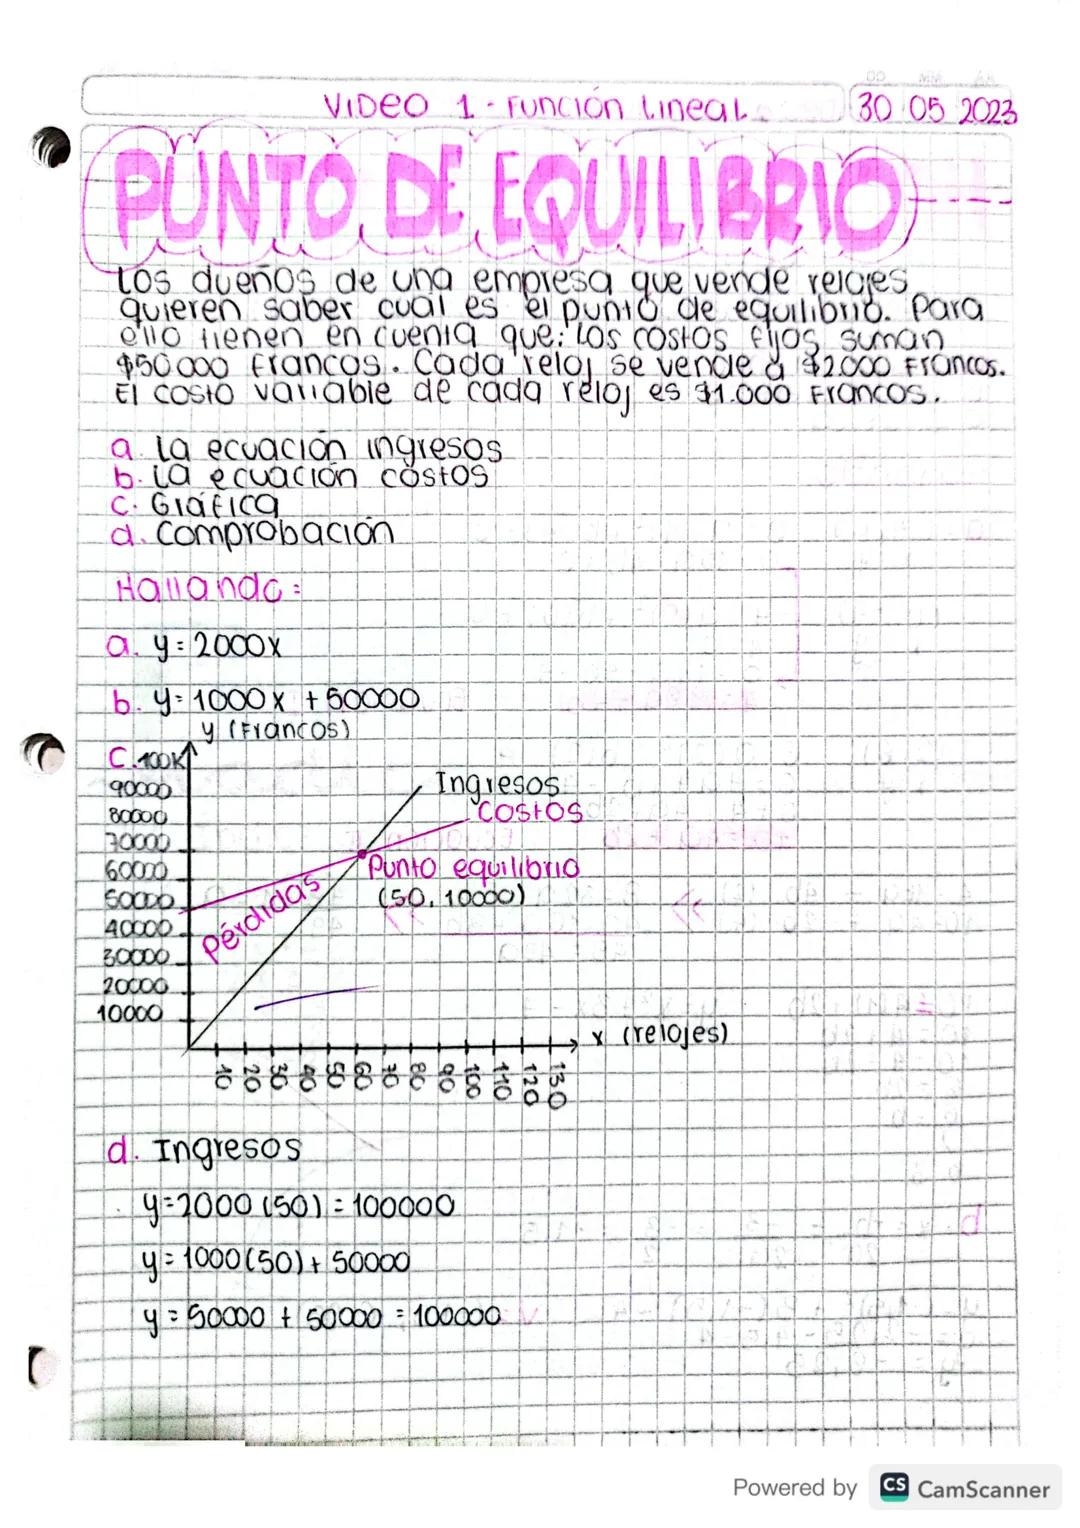 DD MM AA
VIDEO 1 - Función Lineal
30 05 2023
PUNTO DE EQUILIBRIO
Los dueños de una empresa que vende relojes
quieren saber cual es el punto de equilibrio. Para
ello tienen en cuenta que: Los costos fijos suman
$50000 francos. Cada reloj se vende a $2.000 Francos.
El costo variable de cada reloj es $1.000 Francos.
a. La ecuación ingresos
b. La ecuación costos
c. Gráfica
d. Comprobación
Hallando:
a. y = 2000x
b. y = 1000x + 50000
y (Francos)
C. 100K
90000
80000
70000
60000
50000
40000
30000
20000
10000
Ingresos
Costos
Punto equilibrio
(50, 10000)
Pérdidas
x (relojes)
10 20 30 40 50 60 70 80 90 100 110 120 130
d. Ingresos
y=2000 (50) = 100000
y = 1000(50) + 50000
y = 50000 + 50000 = 100000
Powered by CS CamScanner